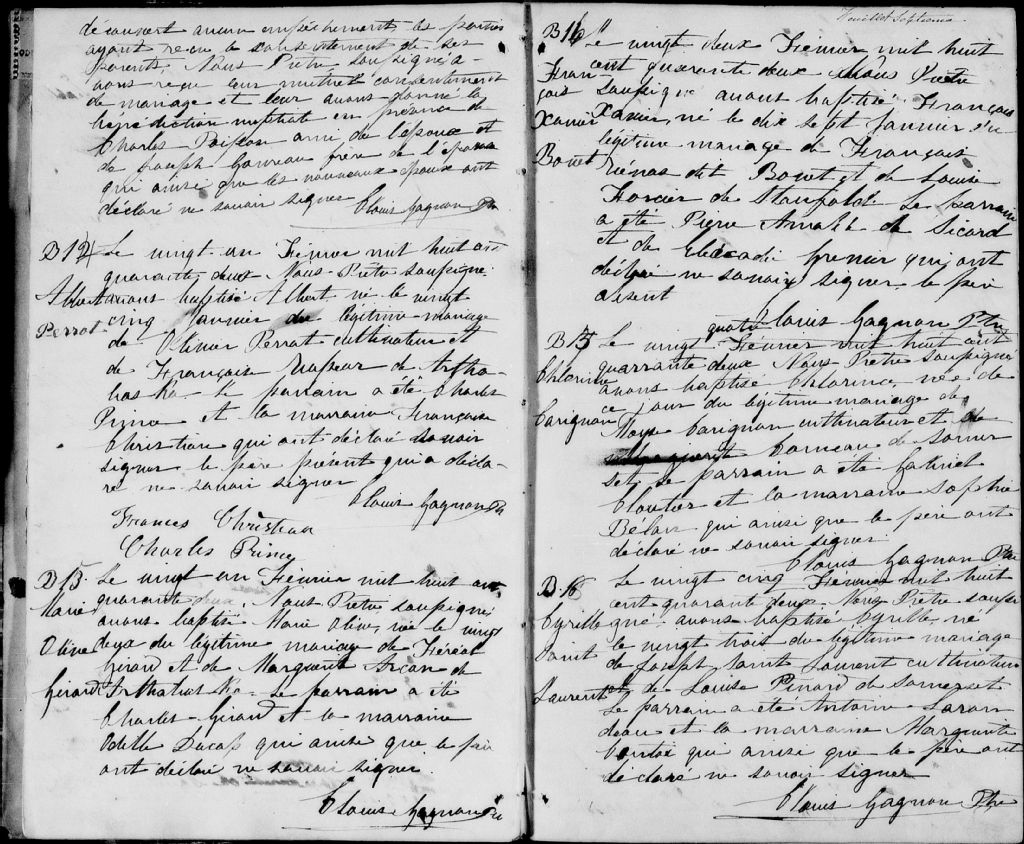 découvert aucun empêchement les parties
ayant reçu le consentement de ses
parents, Nous Prêtre soussigné a-
vons reçu leur mutuel consentement
de mariage et leur avons donné la
bénédiction nuptiale en présence de
Charles Poisson ami de l'époux et
de Joseph Garneau frère de l'épouse
qui ainsi que les nouveaux époux ont
déclaré ne savoir signer
Clouis Gagnon Ptre
B 14
Albert
Perrot
Le vingt un Février mil huit cent
quarante deux Nous Prêtre soussigné
avons baptisé Albert né le vingt
cinq Janvier du légitime mariage
de Olivier Perrot cultivateur et
de Françoise de Artha-
baska. Le parrain a été Charles
Prince et la marraine Françoise
Christian qui ont déclaré savoir
signer le père présent qui a décla-
ré ne savoir signer
Clouis Gagnon Ptr
Frances Christian
Charles Prince
B 15
Marie
Olive
Girard
Le vingt un Février mil huit cent
quarante deux, Nous Prêtre soussigné
avons baptisé Marie Olive, née le vingt
du légitime mariage de
Girard et de Marguerite de
Arthabaska. Le parrain a été
Charles Girard et la marraine
Odille Ducap qui ainsi que le père
ont déclaré ne savoir signer.
Clouis Gagnon Ptr
Feuillet Septième
B 16
François
Xavier
Bouet
Le vingt deux Février mil huit
cent quarante deux Nous Prêtre
soussigné avons baptisé François
Xavier, né le dix sept Janvier du
légitime mariage de François
dit Bouet et de Louise
Forcier de Stanfold. Le parrain
a été Pierre de Sicard
et de qui ont
déclaré ne savoir signer le père
absent
Clouis Gagnon Ptre
B 17
Chlorince
Carignan
Le vingt quatre Février mil huit cent
quarante deux Nous Prêtre soussigné
avons baptisé Chlorince, née de
ce jour du légitime mariage de
Moyse Carignan cultivateur et de
Comeau de Somer
set, Le parrain a été Gabriel
Cloutier et la marraine Sophie
Belan qui ainsi que le père ont
déclaré ne savoir signer.
Clouis Gagnon Ptre
B 18
Cyrille
Saint
Laurent
Le vingt cinq Février mil huit
cent quarante deux. Nous Prêtre soussi
gné avons baptisé Cyrille, né
le vingt trois du légitime mariage
de Joseph Saint Laurent cultivateur
et de Louise Pinard de Somerset
Le parrain a été Antoine
et la marraine Marguerite
qui ainsi que le père ont
déclaré ne savoir signer
Clouis Gagnon Ptre